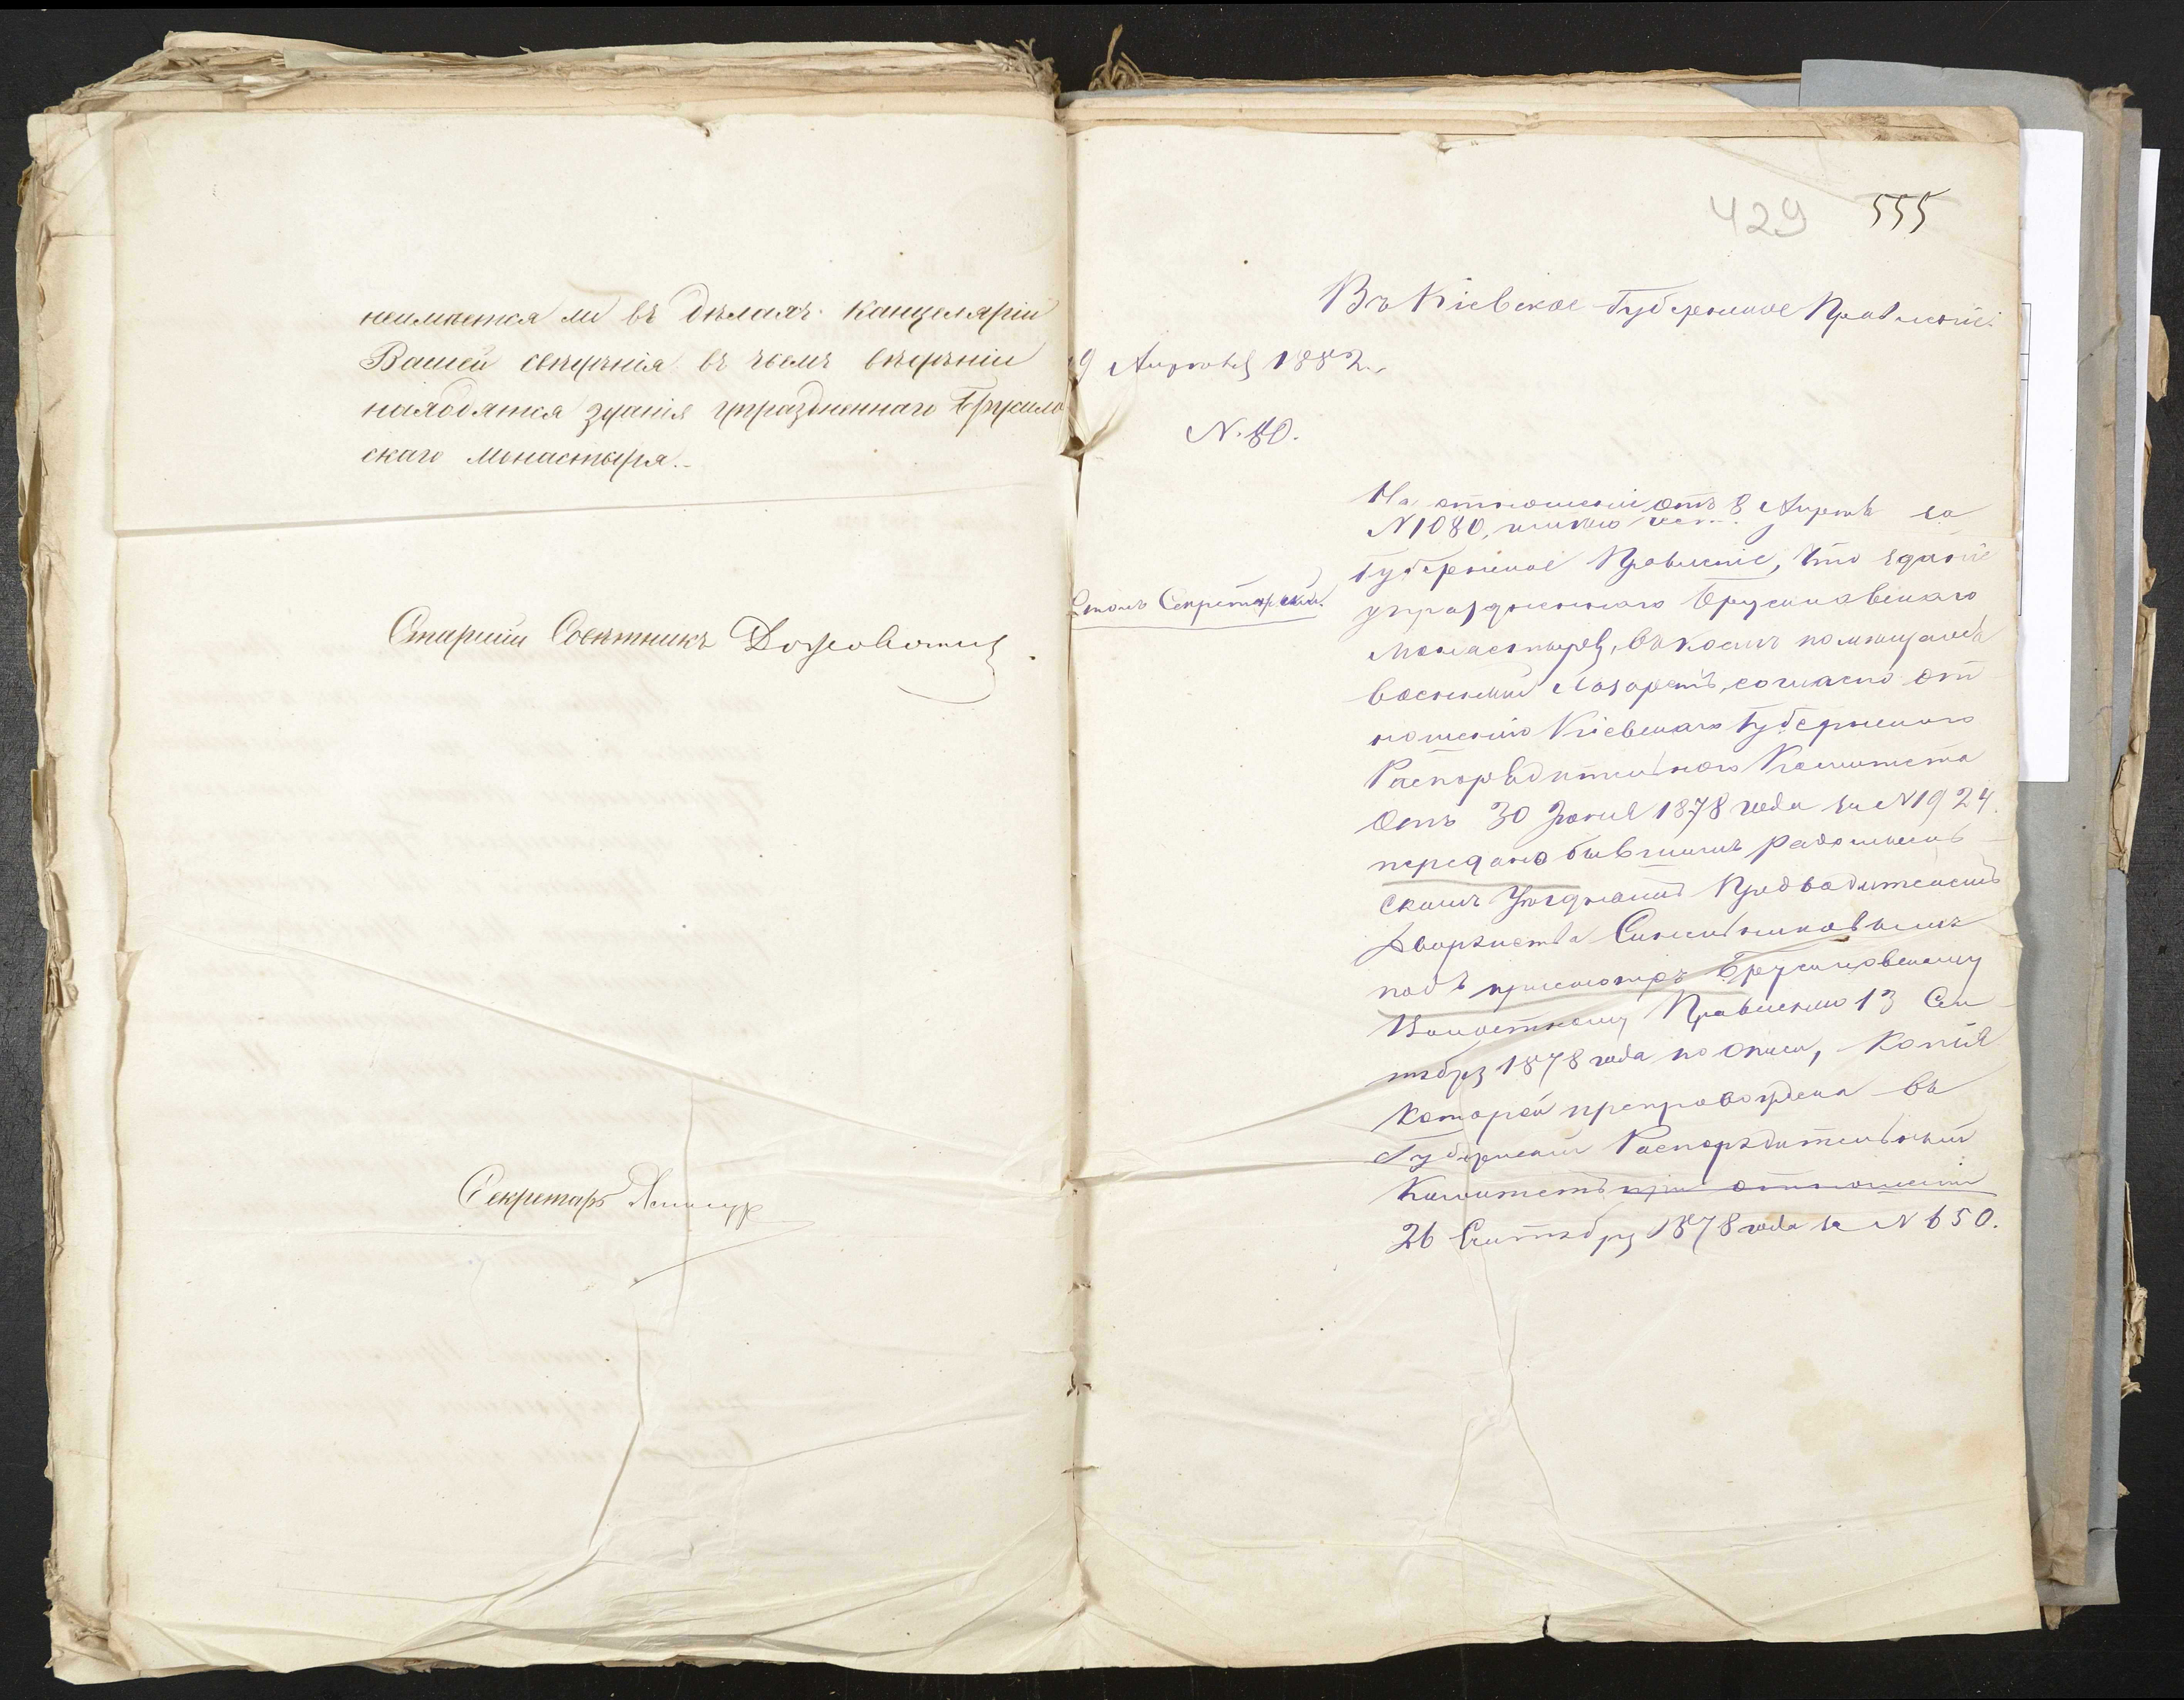 неимѣется ли въ дѣлахъ Канцеляріи
Вашей свѣдѣнія въ чьемъ вѣдѣніи
находятся зданія упраздненнаго Брусило
скаго монастыря.
Старшій Совѣтникъ
Секретарь
429 555
Въ Кіевское Губернское Правленіе.
9 Апрѣля 1882 г.
N. 80.
Столъ Секретарскій.
На отношеніе отъ 8 Апрѣля за
N 1080, имѣю
Губернское Правленіе, что зданіе
упраздненнаго Брусиловскаго
Монастыря, въ коемъ помѣщался
военный Лазаретъ, согласно от
ношенію Кіевскаго Губернскаго
Распорядительнаго Комитета
отъ 30 Іюня 1878 года за N 1924
передано бывшимъ Радомысль
скимъ Уѣзднымъ Предводителемъ
Дворянства Синельниковымъ
подъ присмотръ Брусиловскому
Волостному Правленію 13 Сен
тября 1878 года по описи, копія
которой препровождена въ
Губернскій Распорядительный
Комитетъ при отношеніи
26 Сентября 1878 года за N 650.